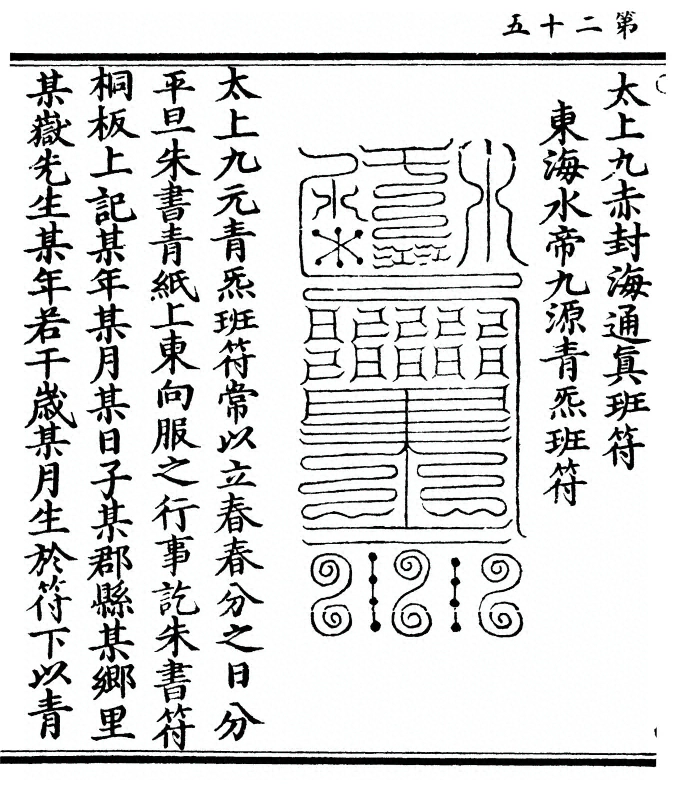 第二十五
太上九赤封海通真班符
東海水帝九源青炁班符
太上九元青炁班符常以立春春分之日分
平旦朱書青紙上東向服之行事訖朱書符
桐板上記某年某月某日子某郡縣某鄉里
某嶽先生某年若干歲某月生於符下以青